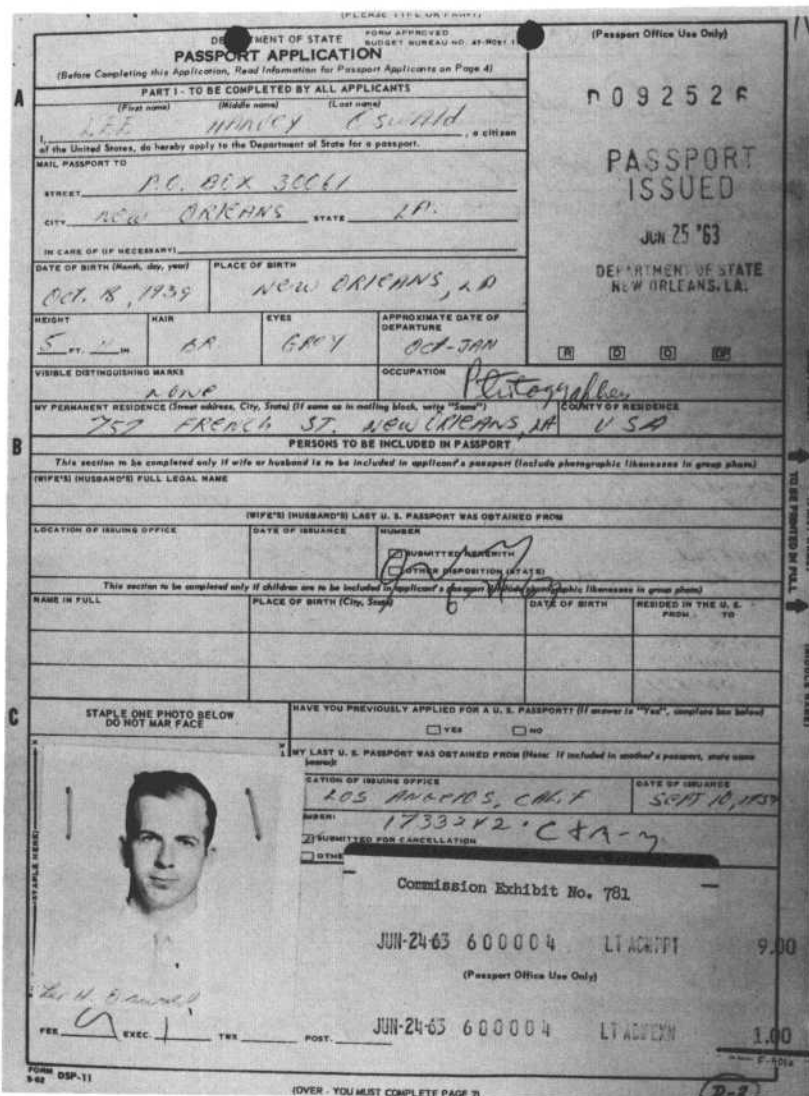 (PLEASE TYPE OR PRINT)
DEPARTMENT OF STATE
FORM APPROVED
BUDGET BUREAU NO.
PASSPORT APPLICATION
(Before Completing this Application, Read Information for Passport Applicants on Page 4)
(Passport Office Use Only)
A
PART I - TO BE COMPLETED BY ALL APPLICANTS
(First name) (Middle name) (Last name)
I, LEE HARVEY Oswald, a citizen
of the United States, do hereby apply to the Department of State for a passport.
D092526
PASSPORT
ISSUED
JUN 25 '63
DEPARTMENT OF STATE
NEW ORLEANS, LA.
R D O DP
MAIL PASSPORT TO
STREET P.O. BOX 30061
CITY NEW ORLEANS STATE LA.
IN CARE OF (IF NECESSARY)
DATE OF BIRTH (Month, day, year)
Oct. 18, 1939
PLACE OF BIRTH
NEW ORLEANS, LA
HEIGHT
5 FT. 11 IN
HAIR
BR
EYES
GREY
APPROXIMATE DATE OF DEPARTURE
OCT-JAN
VISIBLE DISTINGUISHING MARKS
NONE
OCCUPATION
Photographer
MY PERMANENT RESIDENCE (Street address, City, State) (If same as in mailing block, write "Same")
757 FRENCH ST. NEW ORLEANS, LA
COUNTY OF RESIDENCE
USA
B
PERSONS TO BE INCLUDED IN PASSPORT
This section to be completed only if wife or husband is to be included in applicant's passport (Include photographic likenesses in group photo)
(WIFE'S) (HUSBAND'S) FULL LEGAL NAME
(WIFE'S) (HUSBAND'S) LAST U. S. PASSPORT WAS OBTAINED FROM
LOCATION OF ISSUING OFFICE
DATE OF ISSUANCE
NUMBER
SUBMITTED HEREWITH
OTHER DISPOSITION (STATE)
This section to be completed only if children are to be included in applicant's passport (Include photographic likenesses in group photo)
NAME IN FULL
PLACE OF BIRTH (City, State)
DATE OF BIRTH
RESIDED IN THE U. S.
FROM TO
TO BE PRINTED IN FULL
C
STAPLE ONE PHOTO BELOW
DO NOT MAR FACE
HAVE YOU PREVIOUSLY APPLIED FOR A U. S. PASSPORT? (If answer is "Yes", complete box below)
YES NO
MY LAST U. S. PASSPORT WAS OBTAINED FROM (Note: If included in another's passport, state name
CATION OF ISSUING OFFICE
LOS ANGELES, CALIF
DATE OF ISSUANCE
SEPT 10, 1959
1733242
SUBMITTED FOR CANCELLATION
OTHE
(STAPLE HERE)
Commission Exhibit No. 781
JUN-24-63 600004 9.00
(Passport Office Use Only)
JUN-24-63 600004 1.00
Lee H. Oswald
FEE 9 EXEC. 1 TWX POST.
FORM
5-62 DSP-11
(OVER - YOU MUST COMPLETE PAGE 2)
D-2